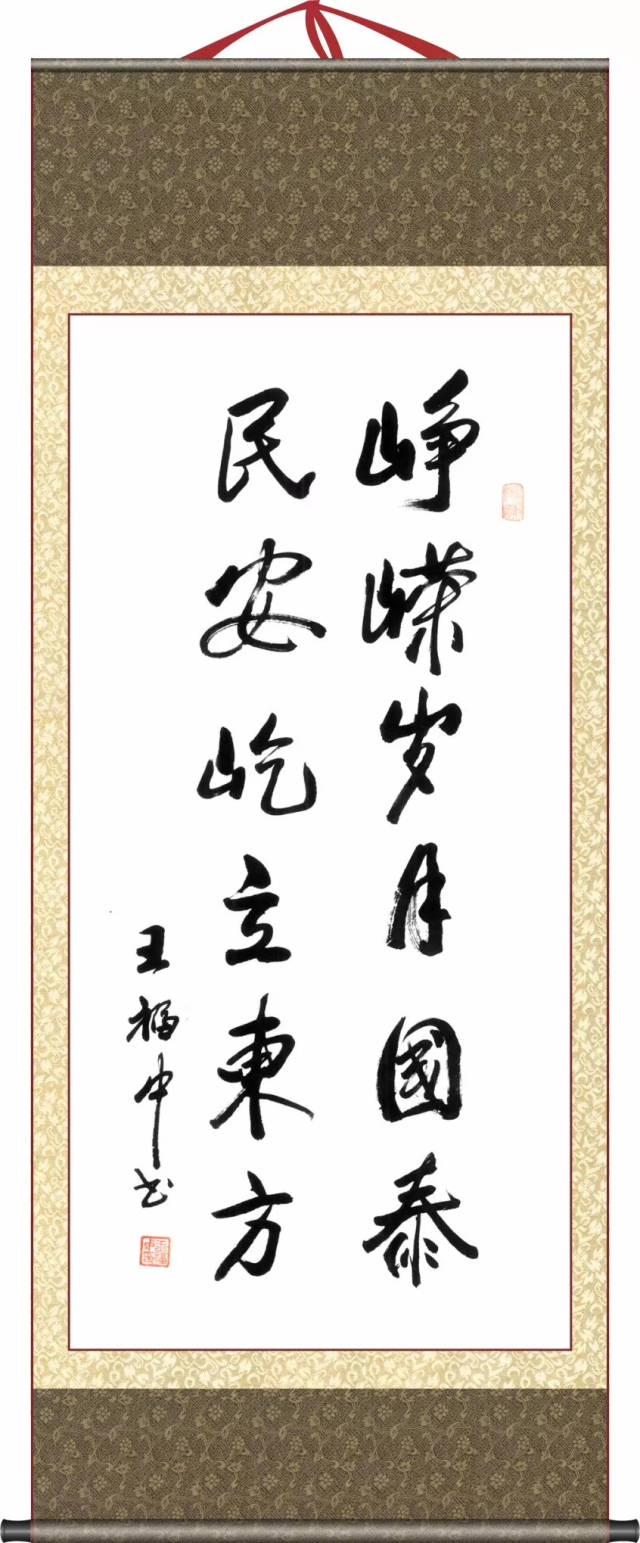 峥嵘岁月國泰
民安屹立東方
王福中书